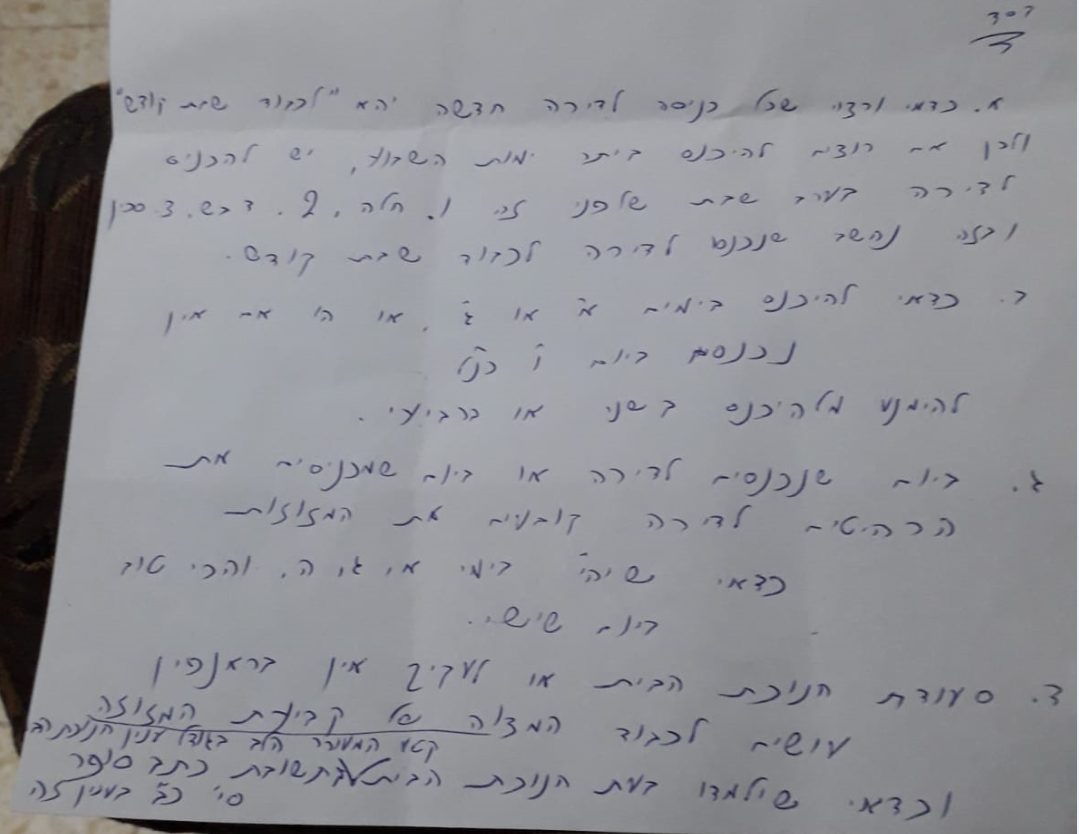 בסד
א. כדאי ורצוי שכל כניסה לדירה חדשה יהא "לכבוד שבת קודש"
ולכן אם רוצים להיכנס ביתר ימות השבוע, יש להכניס
לדירה בערב שבת שלפני זה 1. חלה, 2. דבש, 3. סכין
ובזה נחשב שנכנס לדירה לכבוד שבת קודש.
ב. כדאי להיכנס בימים א' או ג', או ה' אם אין
נכנסים ביום ו' כנ"ל
להימנע מלהיכנס בשני או ברביעי.
ג. ביום שנכנסים לדירה או ביום שמכניסים את
הרהיטים לדירה קובעים את המזוזות
כדאי שיהי' בימי א, ג, ה, והכי טוב
ביום שישי.
ד. סעודת חנוכת הבית או לעקיך אין בראנפין
עושים לכבוד המצוה של קביעת המזוזה
קטע המעורר הלב בגודל ענין חנוכת הב
וכדאי שילמדו בעת חנוכת הבית בתשובת כתב סופר
סי' כ"ב בענין זה